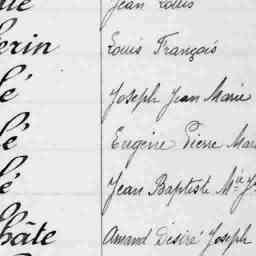 Jean Louis
erin Louis François
é Joseph Jean Marie
é Eugène Pierre Mar
é Jean Baptiste M^ie J
hâte Amand Désiré Joseph